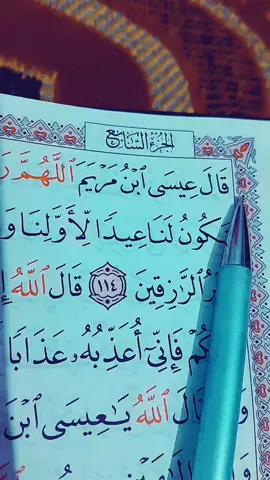 الجزء السابع
قَالَ عِيسَى ٱبۡنُ مَرۡيَمَ ٱللَّهُمَّ
تَكُونُ لَنَا عِيدٗا لِّأَوَّلِنَا وَ
ٱلرَّٰزِقِينَ ١١٤ قَالَ ٱللَّهُ
فَإِنِّيٓ أُعَذِّبُهُۥ عَذَابٗا
ٱللَّهُ يَٰعِيسَى ٱبۡنَ